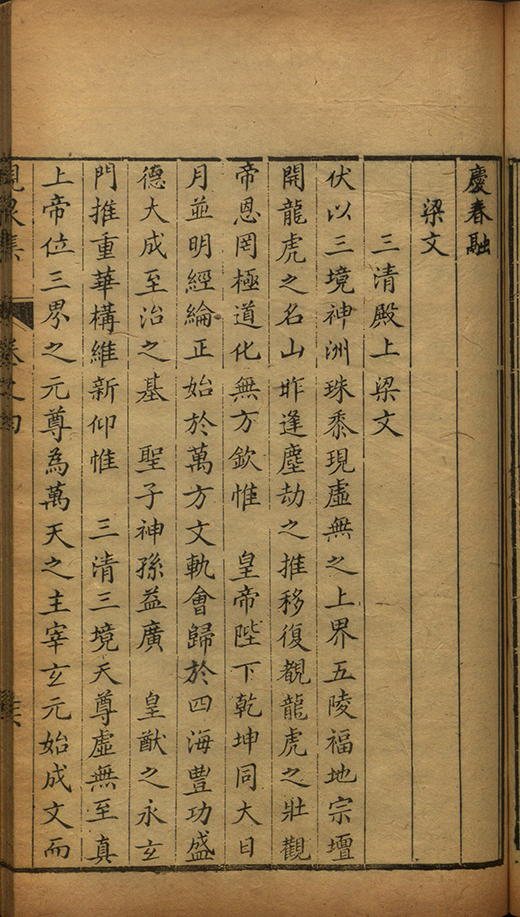 慶春融
梁文
三清殿上梁文
伏以三境神洲珠黍現虛無之上界五陵福地宗壇
開龍虎之名山昨逢塵劫之推移復覩龍虎之壯觀
帝恩罔極道化無方欽惟　皇帝陛下乾坤同大日
月並明經綸正始於萬方文軌會歸於四海豊功盛
德大成至治之基　聖子神孫益廣　皇猷之永玄
門推重華構維新仰惟　三清三境天尊虛無至真
上帝位三界之元尊為萬天之主宰玄元始成文而
峴泉集　卷之四